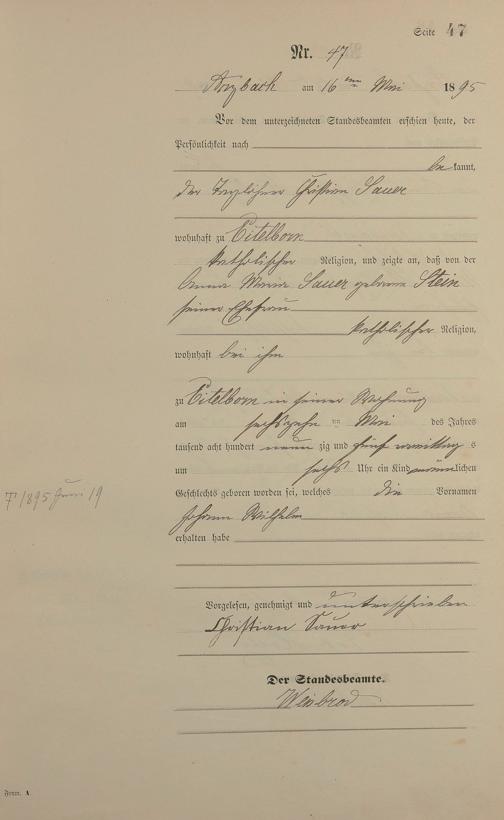 Seite 47
Nr. 47
Arzbach am 16ten Mai 1895
Vor dem unterzeichneten Standesbeamten erschien heute, der
Persönlichkeit nach
be kannt,
der Taglöhner Christian Sauer
wohnhaft zu Eitelborn
katholischer Religion, und zeigte an, daß von der
Anna Maria Sauer geborne Stein
seiner Ehefrau
katholischer Religion,
wohnhaft bei ihm
zu Eitelborn in seiner Wohnung
am sechszehn ten Mai des Jahres
tausend acht hundert neun zig und fünf vormittag s
um sechs Uhr ein Kind männlichen
Geschlechts geboren worden sei, welches die Vornamen
Johann Wilhelm
erhalten habe
† 1895 Juni 19
Vorgelesen, genehmigt und unterschrieben
Christian Sauer
Der Standesbeamte.
Weisbrod
Form. A.